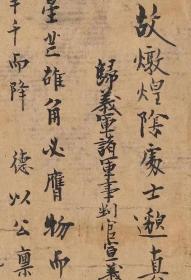 故燉煌陰處士邈真
歸義軍諸軍事判官宣義
星芒雄角必膺物而
千而降　德以公稟